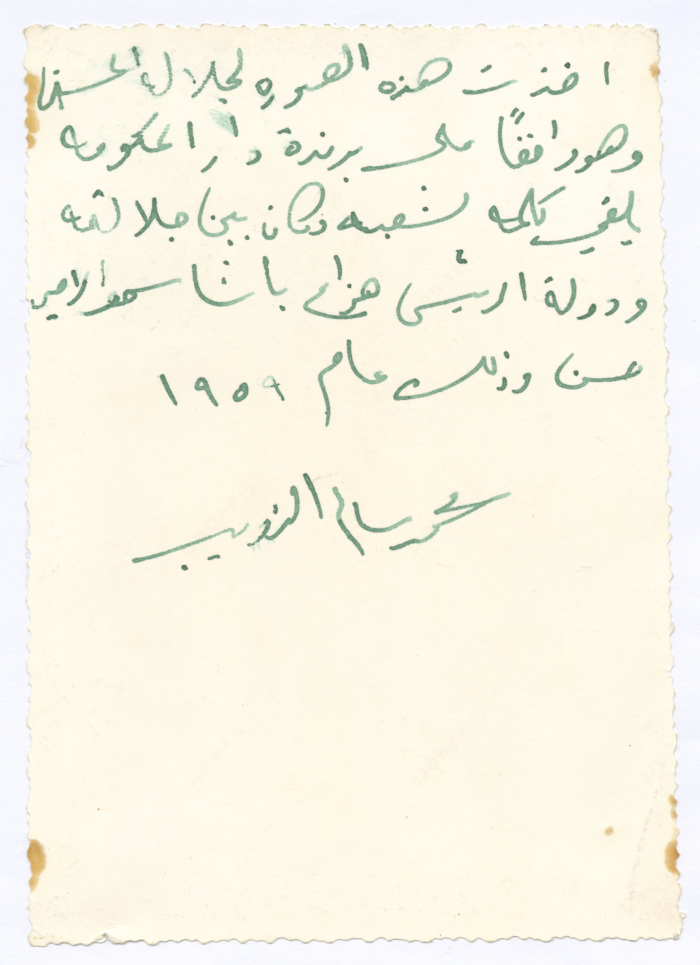 اخذت هذه الصوره لجلالة الحسين
وهو واقفاً على برندة دار الحكومه
يلقي كلمه لشعبه وكان بين جلالته
ودولة الريس هزاع باشا سمو الامير
حسن وذلك عام ١٩٥٩
محمد سالم الذويب